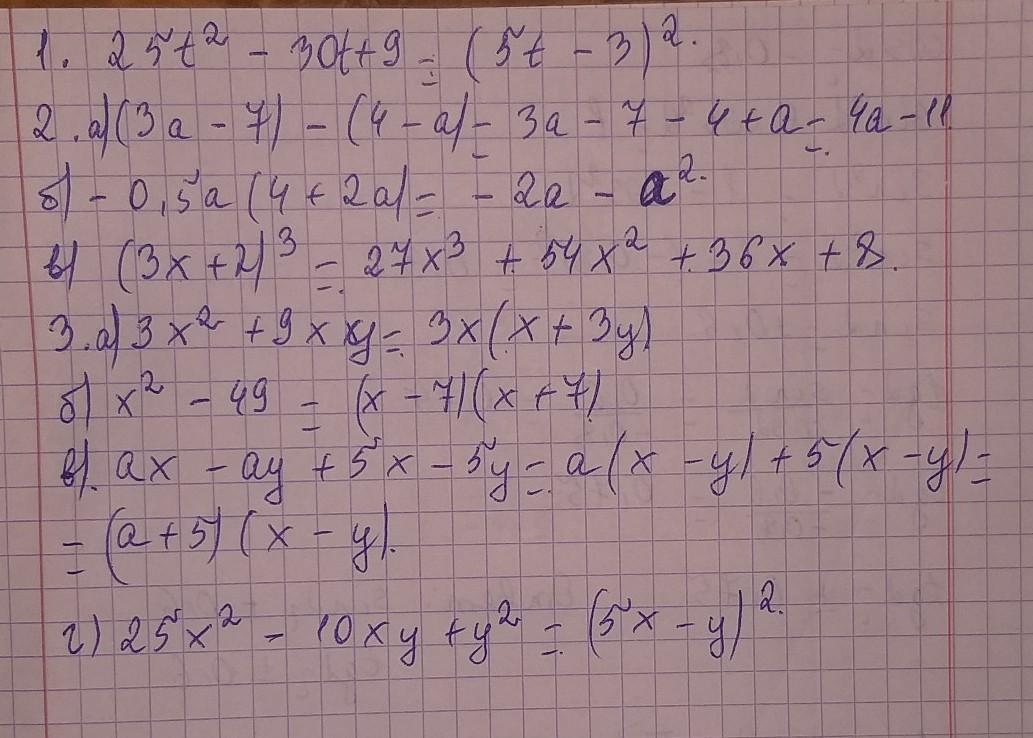 1. 25t² - 30t + 9 = (5t - 3)².
2. а) (3a - 7) - (4 - a) = 3a - 7 - 4 + a = 4a - 11
б) - 0,5a (4 + 2a) = - 2a - a².
в) (3x + 2)³ = 27x³ + 54x² + 36x + 8.
3. а) 3x² + 9xy = 3x (x + 3y)
б) x² - 49 = (x - 7)(x + 7)
в). ax - ay + 5x - 5y = a (x - y) + 5 (x - y) =
= (a + 5) (x - y).
г) 25x² - 10xy + y² = (5x - y)².